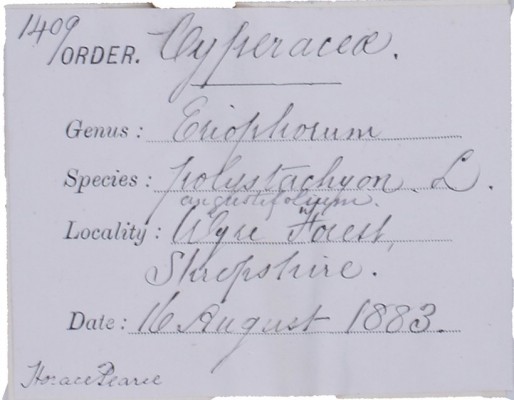 1409
ORDER. Cyperaceæ.
Genus: Eriophorum
Species: polystachyon. L.
angustifolium.
Locality: Wyre Forest,
Shropshire.
Date: 16 August 1883.
Horace Pearce